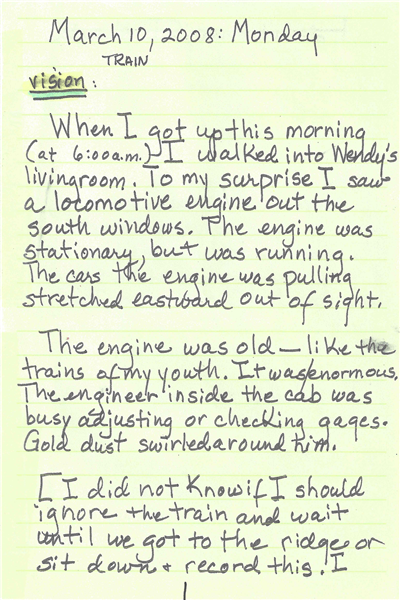 March 10, 2008: Monday
TRAIN
vision:
When I got up this morning
(at 6:00a.m.) I walked into Wendy's
livingroom. To my surprise I saw
a locomotive engine out the
south windows. The engine was
stationary, but was running.
The cars the engine was pulling
stretched eastward out of sight.
The engine was old — like the
trains of my youth. It was enormous.
The engineer inside the cab was
busy adjusting or checking gages.
Gold dust swirled around him.
[I did not know if I should
ignore the train and wait
until we got to the ridge or
sit down + record this. I
1